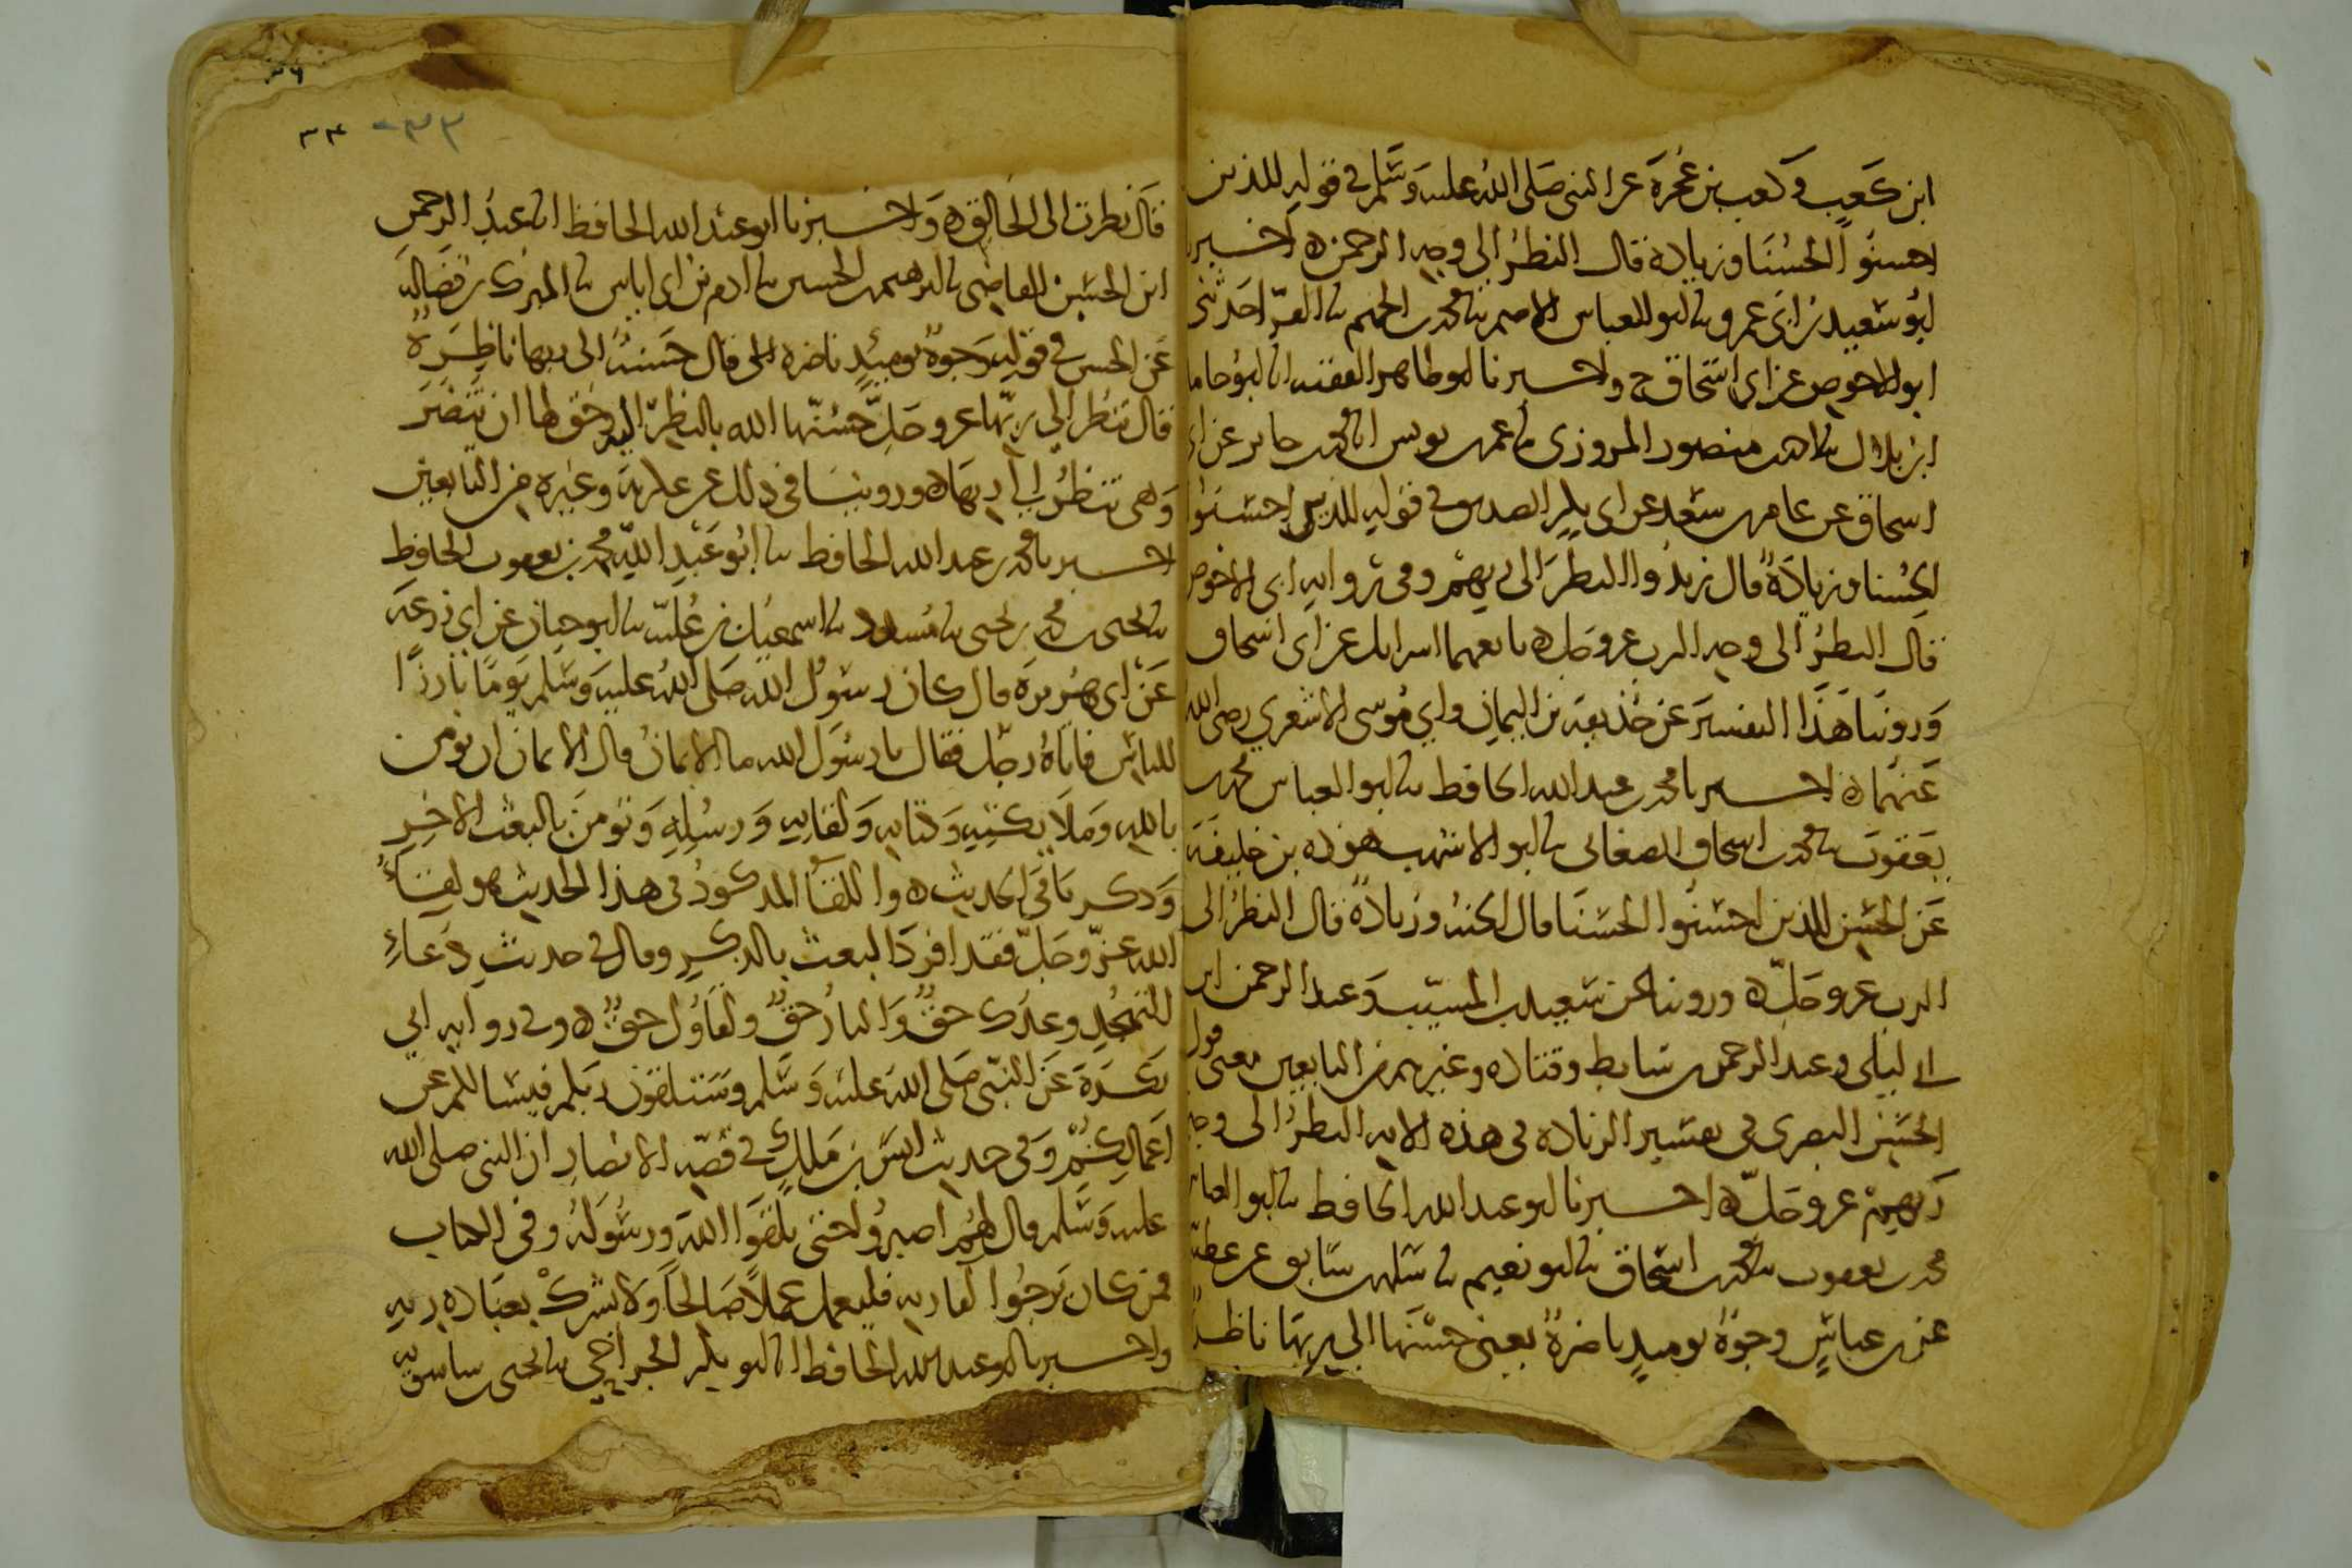 ابن كعب وكعب بن عجرة عن النبي صلى الله عليه وسلم في قوله للذين
احسنوا الحسنا وزيادة قال النظر الى وجه الرحمن ه اخبرنا
ابو سعيد بن ابي عمرو نا ابو العباس الاصم نا محمد بن الجهم نا الفرا حدثني
ابو الاحوص عن ابي اسحاق ح واخبرنا ابو طاهر الفقيه انا ابو حامد
ابن بلال نا احمد بن منصور المروزي نا عمر بن يونس انا محمد بن جابر عن ابي
اسحاق عن عامر بن سعد عن ابي بكر الصديق في قوله للذين احسنوا
الحسنا وزيادة قال زيدوا النظر الى ربهم وفي رواية ابي الاحوص
قال النظر الى وجه الرب عز وجل ه تابعهما اسرايل عن ابي اسحاق
وروينا هذا التفسير عن حذيفة بن اليمان وابي موسى الاشعري رضي الله
عنهما ه اخبرنا محمد بن عبد الله الحافظ نا ابو العباس محمد بن
يعقوب نا محمد بن اسحاق الصغاني نا ابو الاشهب هوذة بن خليفة
عن الحسن للذين احسنوا الحسنا قال الجنة وزيادة قال النظر الى
الرب عز وجل ه وروينا عن سعيد بن المسيب وعبد الرحمن ابن
ابي ليلى وعبد الرحمن بن سابط وقتادة وغيرهم من التابعين معنى قول
الحسن البصري في تفسير الزيادة في هذه الاية النظر الى وجه
ربهم عز وجل ه اخبرنا ابو عبد الله الحافظ نا ابو العباس
محمد بن يعقوب نا محمد بن اسحاق نا ابو نعيم نا سلمة بن سابق عن عطية
عن بن عباس وجوه يوميذ ناضرة يعني حسنها الى ربها ناظرة
٣٦
٣٣ - ٣٣
قال نظرت الى الخالق ه واخبرنا ابو عبد الله الحافظ انا عبد الرحمن
ابن الحسن القاضي نا ابرهيم بن الحسين نا ادم بن ابي اياس نا المبرك بن فضالة
عن الحسن في قوله وجوه يوميذ ناضرة قال حسنة الى ربها ناظرة
قال تنظر الى ربها عز وجل حسنها الله بالنظر اليه وحق لها ان تنضر
وهي تنظر الى ربها ه وروينا في ذلك عن عكرمة وغيره من التابعين
اخبرنا محمد بن عبد الله الحافظ نا ابو عبد الله محمد بن يعقوب الحافظ
نا يحيى بن محمد بن يحيى نا مسدد نا اسمعيل بن علية نا ابو حيان عن ابي زرعة
عن ابي هريرة قال كان رسول الله صلى الله عليه وسلم يوما بارزا
للناس فاتاه رجل فقال يا رسول الله ما الايمان قال الايمان ان تومن
بالله وملايكته وكتابه ولقايه ورسله وتومن بالبعث الاخر
وذكر باقي الحديث ه واللقا المذكور في هذا الحديث هو لقاء
الله عز وجل فقد افرد البعث بالذكر وقال في حديث دعاء
التهجد وعدك حق والنار حق ولقاؤك حق ه وفي رواية ابي
بكرة عن النبي صلى الله عليه وسلم وستلقون ربكم فيسالكم عن
اعمالكم وفي حديث انس بن ملك في قصة الانصار ان النبي صلى الله
عليه وسلم قال لهم اصبروا حتى تلقوا الله ورسوله وفي الكتاب
فمن كان يرجوا لقا ربه فليعمل عملا صالحا ولا يشرك بعبادة ربه
واخبرنا ابو عبد الله الحافظ انا ابو بكر الجراحي نا يحيى بن ساسويه